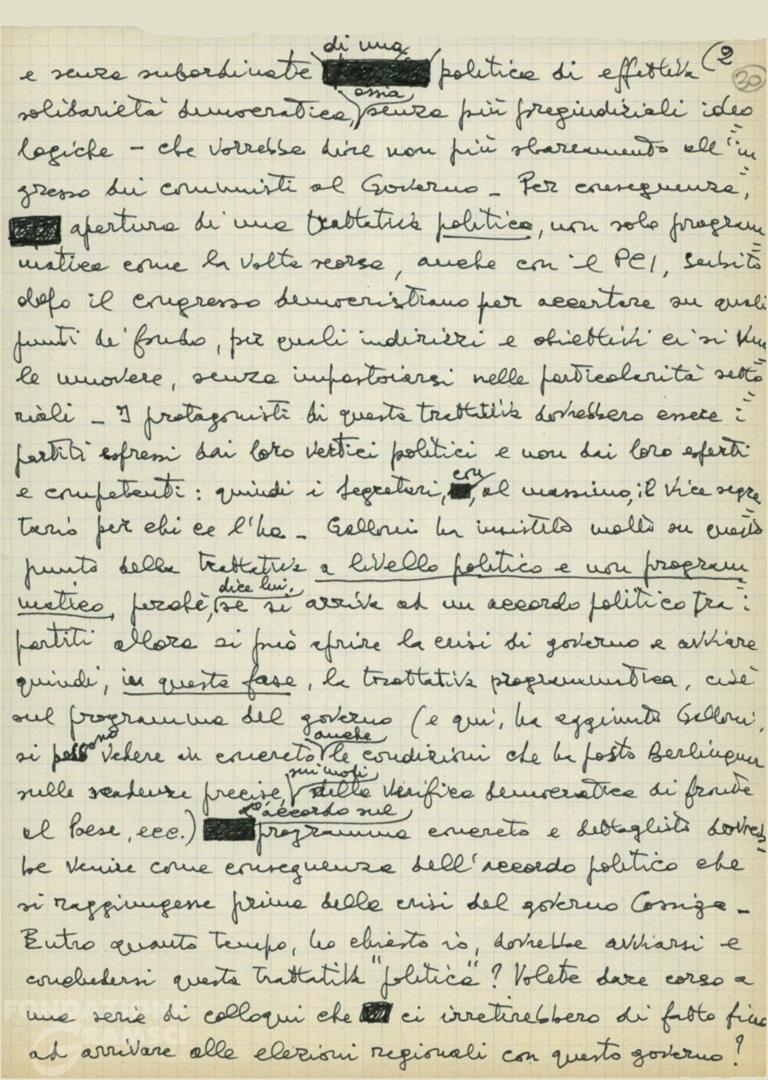 (2
30
di una
e senza subordinate politica di effettiva
ossia
solidarietà democratica, senza più pregiudiziali ideo
logiche - che vorrebbe dire non più sbarramento all'in
gresso dei comunisti al Governo - Per conseguenza,
apertura di una trattativa politica, non solo program
matica come la volta scorsa, anche con il PCI, subito
dopo il congresso democristiano per accertare su quali
punti di fondo, per quali indirizzi e obiettivi ci si vuo
le muovere, senza impastoiarsi nelle particolarità setto
riali - I protagonisti di questa trattativa dovrebbero essere i
partiti espressi dai loro vertici politici e non dai loro esperti
con
e competenti: quindi i Segretari, al massimo, il Vice segre
tario per chi ce l'ha - Galloni ha insistito molto su questo
punto della trattativa a livello politico e non program
dice lui,
matico, perché, se si arriva ad un accordo politico tra i
partiti allora si può aprire la crisi di governo e avviare
quindi, in questa fase, la trattativa programmatica, cioè
sul programma del governo (e qui, ha aggiunto Galloni,
anche
si possono vedere in concreto le condizioni che ha posto Berlinguer
sui modi
sulle scadenze precise della verifica democratica di fronte
L'accordo sul
al Paese, ecc.) programma concreto e dettagliato dovreb
be venire come conseguenza dell'accordo politico che
si raggiungesse prima della crisi del governo Cossiga -
Entro quanto tempo, ho chiesto io, dovrebbe avviarsi e
concludersi questa trattativa "politica"? Volete dare corso a
una serie di colloqui che ci irretirebbero di fatto fino
ad arrivare alle elezioni regionali con questo governo?
FONDAZION